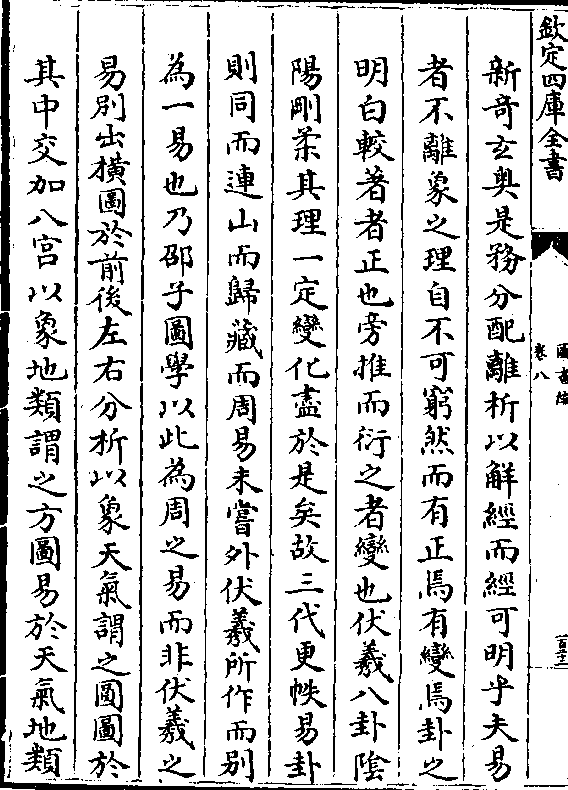 欽定四庫全書
卷八
新奇玄奥是務分配離析以解經而經可明乎夫易
者不離象之理自不可窮然而有正焉有變焉卦之
明白較著者正也旁推而衍之者變也伏羲八卦陰
陽剛柔其理一定變化盡於是矣故三代更帙易卦
則同而連山而歸藏而周易未嘗外伏羲所作而别
為一易也乃邵子圖學以此為周之易而非伏羲之
易别出橫圖於前後左右分析以象天氣謂之圓圖於
其中交加八宮以象地類謂之方圖易於天氣地類